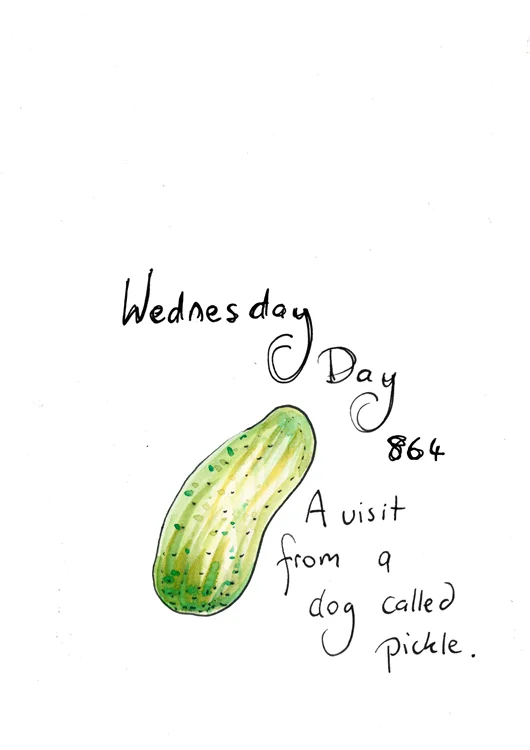 Wednesday
Day
864
A visit
from a
dog called
pickle.